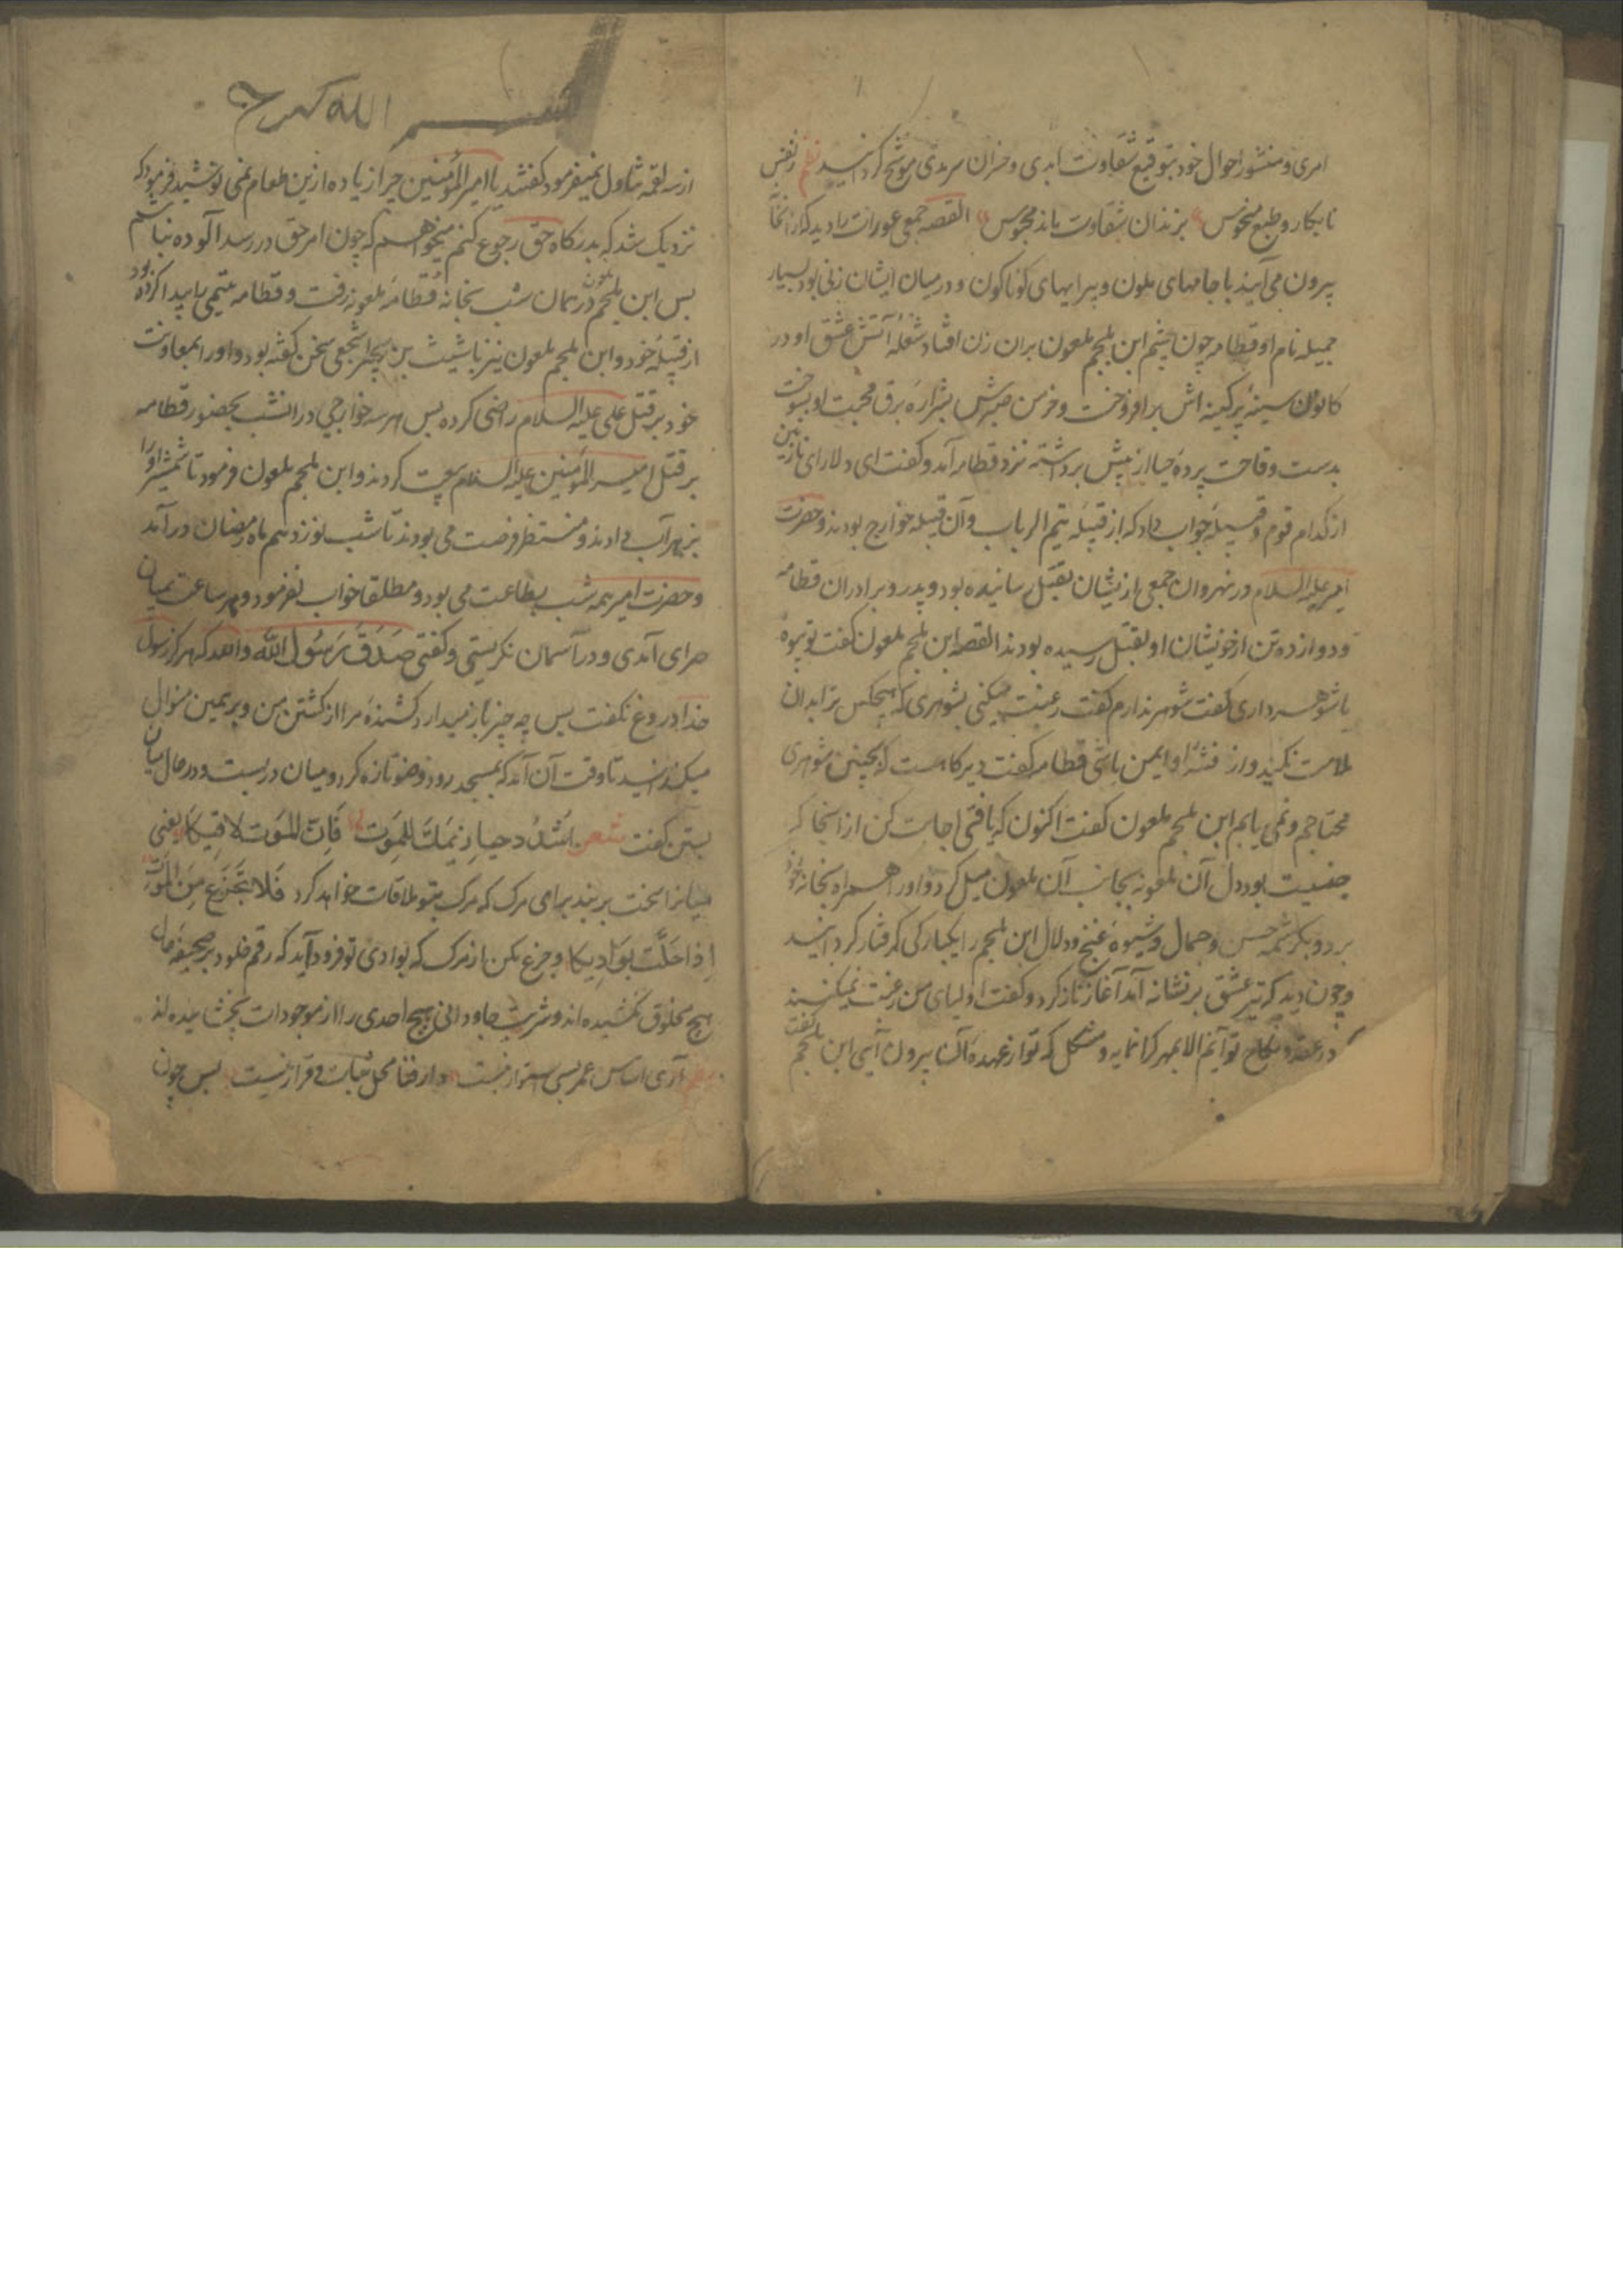 امری و منشور احوال خود بتوقیع شقاوت ابدی و خسران سرمدی موشح کردانید نظم ز نفس
نابکار و طبع منحوس بزندان شقاوت ماند محبوس القصه جمعی عورات را دید که از انخا
بیرون می آیند با جامهای ملون و پیرایهای کوناکون و در میان ایشان زنی بود بسیار
جمیله نام او قطامه چون چشم ابن ملجم ملعون بران زن افتاد شعلهٔ آتش عشق او در
کانون سینهٔ پرکینه اش برافروخت و خرمن صبرش بشرارهٔ برق محبت او بسوخت
بدست وقاحت پردهٔ حیا از پیش برداشته نزد قطامه آمد و کفت ای دلارای نازنین
از کدام قوم و قبیلهٔ جواب داد که از قبیلهٔ تیم الرباب و آن قبیله خوارج بودند و حضرت
امیر علیه السلام در نهروان جمعی از ایشان بقتل رسانیده بود و پدر و برادران قطامه
و دوازده تن از خویشان او بقتل رسیده بودند القصه ابن ملجم ملعون کفت تو بیوهٔ
یا شوهر داری کفت شوهر ندارم کفت رغبت میکنی بشوهری که هیچکس ترا بدان
ملامت نکند و از فتنهٔ او ایمن باشی قطامه کفت دیرکاهست که بچنین شوهری
محتاجم و نمی یابم ابن ملجم ملعون کفت اکنون که یافتی اجابت کن از انجا که
جنسیت بود دل آن ملعونه بجانب آن ملعون میل کرد و اورا همراه بخانهٔ خود
برد و بکرشمه حسن و جمال و شیوهٔ غنج و دلال ابن ملجم را یکبارکی کرفتار کردانید
و چون دید که تیر عشق بر نشانه آمد آغاز ناز کرد و کفت اولیای من رغبت نمیکنند
که در عقد و نکاح تو آیم الا بمهر کرانمایه و مشکل که تو از عهدهٔ آن بیرون آیی ابن ملجم کفت
از سه لقمه تناول نمیفرمود کفتند یا امیر المؤمنین چرا زیاده ازین طعام نمی نوشید فرمود که
نزدیک شد که بدرکاه حق رجوع کنم میخواهم که چون امر حق در رسد آلوده نباشم
بس ابن ملجم ملعون در همان شب بخانهٔ قطامهٔ ملعونه رفت و قطامه تیمی را پیدا کرده بود
از قبیلهٔ خود و ابن ملجم ملعون نیز با شبیث بن بجیر اشجعی سخن کفته بود و اورا بمعاونت
خود بر قتل علی علیه السلام راضی کرده بس هر سه خوارجی در انشب بحضور قطامه
بر قتل امیر المؤمنین علیه السلام بیعت کردند و ابن ملجم ملعون فرمود تا شمشیر اورا
بزهر آب دادند و منتظر فرصت می بودند تا شب نوزدهم ماه رمضان درآمد
و حضرت امیر همه شب بطاعت می بود و مطلقا خواب نفرمود و هر ساعت بمیان
سرای آمدی و در آسمان نکریستی و کفتی صَدَقَ رَسُولُ الله والله که هرکز رسول
خدا دروغ نکفت بس چه چیز باز میدارد کشندهٔ مرا از کشتن من و بر همین منوال
میکذرانید تا وقت آن آمد که بمسجد رود وضو تازه کرد و میان در بست و در حال میان
بستن کفت شعر اُشْدُد حیازیمَكَ لِلمَوت فَاِنَّ المَوت لاقیکا یعنی
میان را سخت بربند برای مرک که مرک بتو ملاقات خواهد کرد فَلا تَجْزَع مِنَ المَوْتِ
اِذا حَلَّت بوَادِیکا و جزع مکن از مرک که بوادی تو فرود آید که رقم خلود بر صحیفهٔ حال
هیچ مخلوق نکشیده اند و شربت جاودانی هیچ احدی را از موجودات نچشانیده اند
آری اساس عمر بسی استوار نیست دار فنا محل ثبات و قرار نیست بس چون